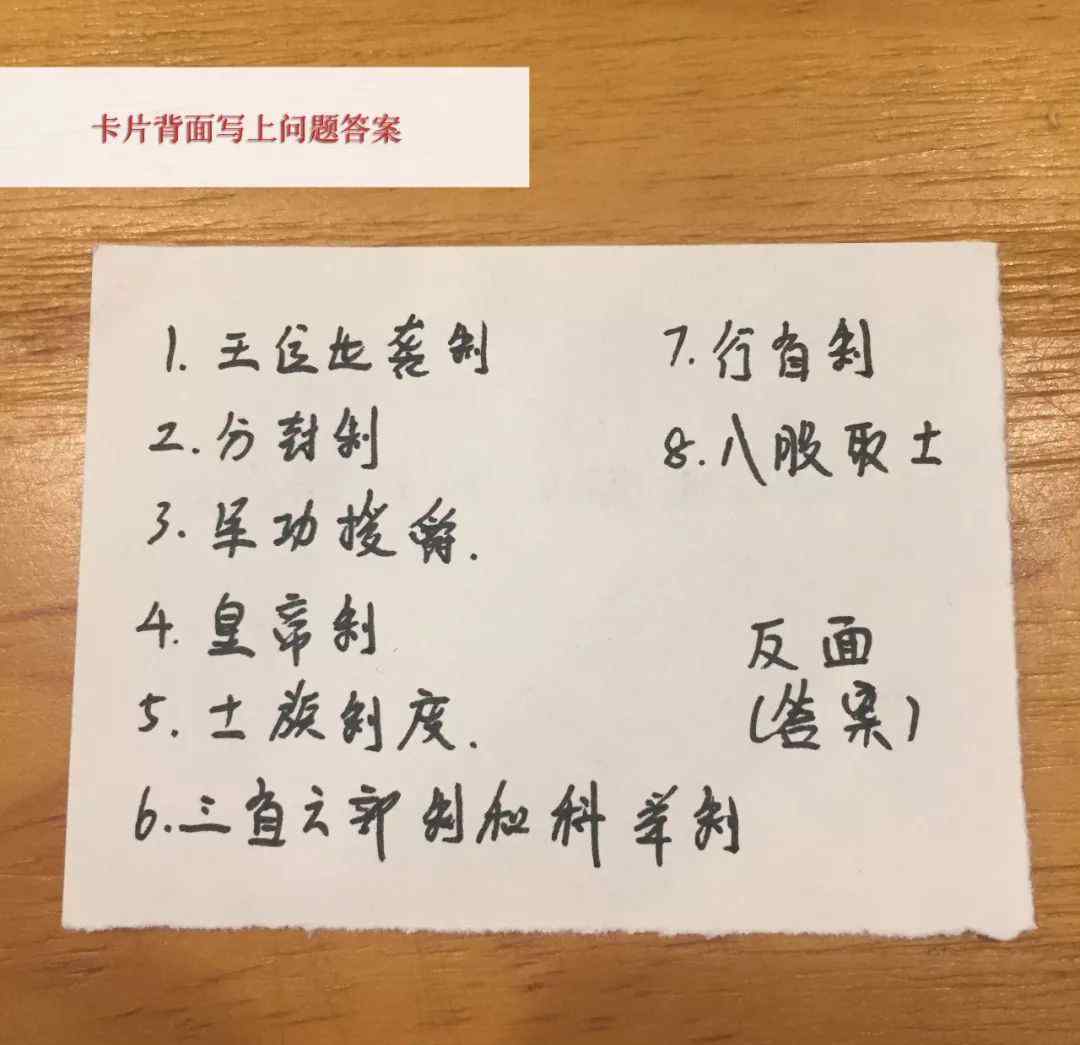 卡片背面写上问题答案
1. 王位世袭制
2. 分封制
3. 军功授爵.
4. 皇帝制
5. 士族制度.
6. 三省六部制和科举制
7. 行省制
8. 八股取士
反面
(答案)